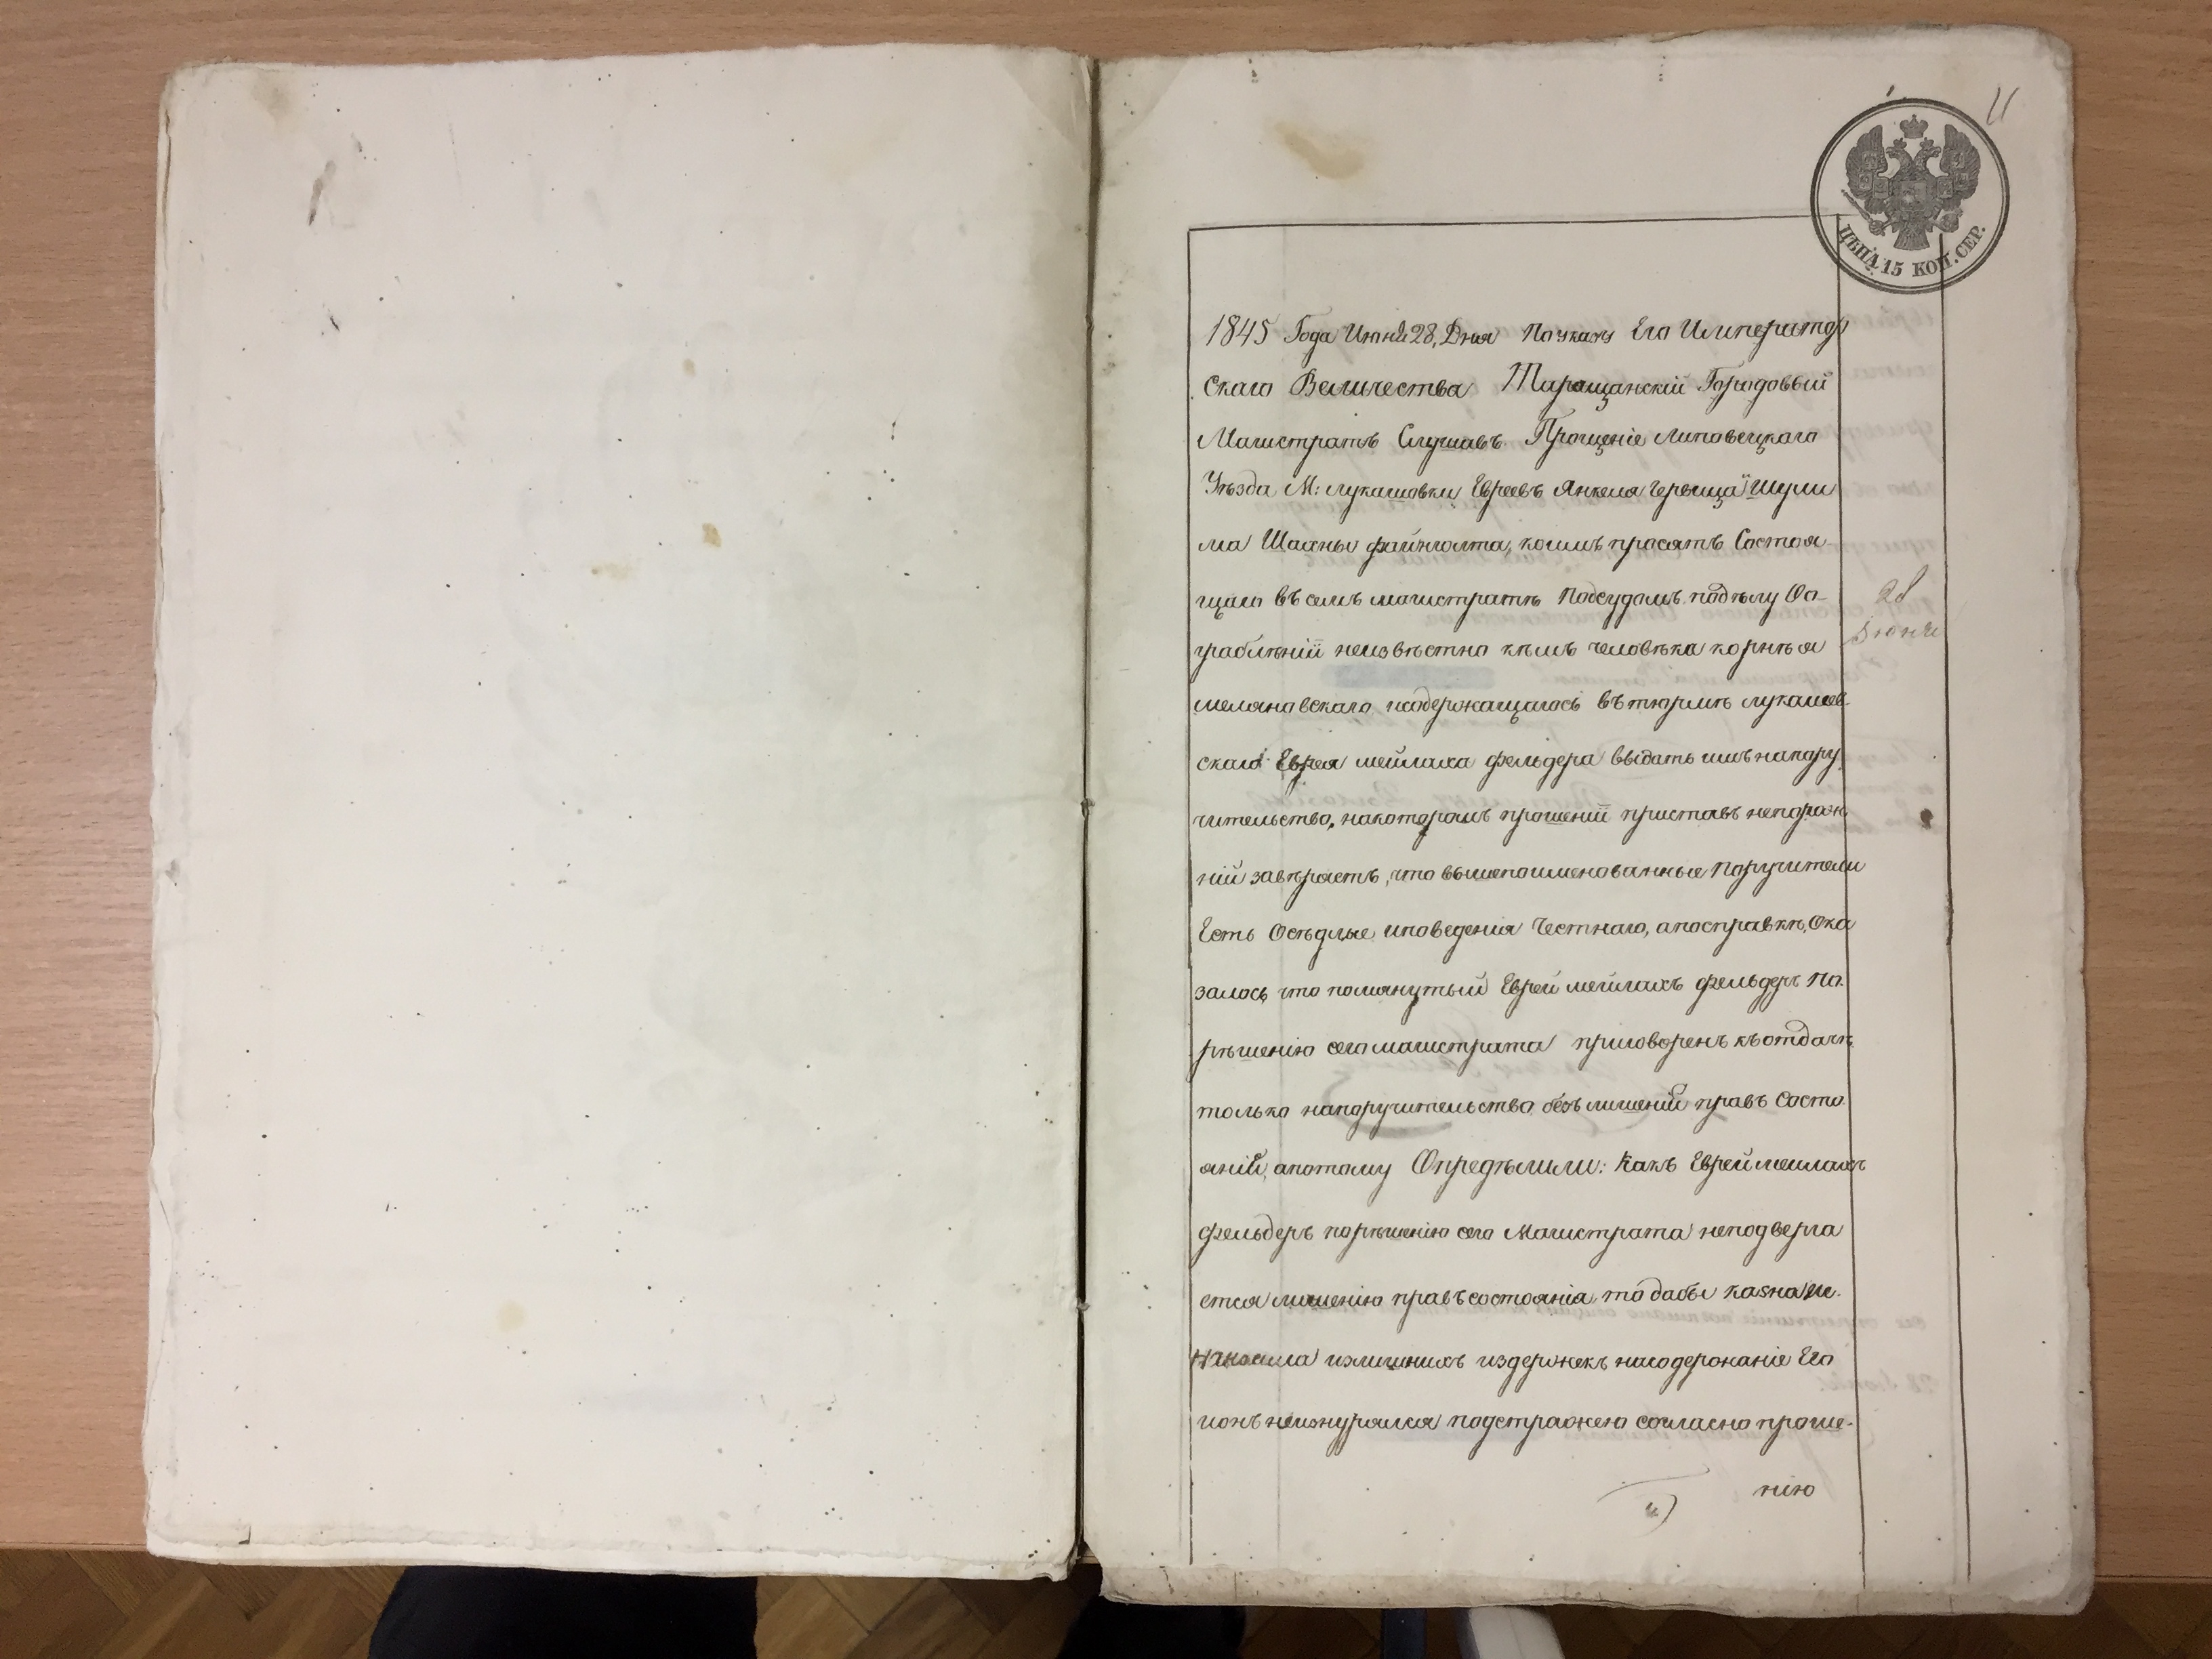 11
ЦѢНА 15 КОП. СЕР.
1845 Года Июня 28, Дня По указу Его Император
скаго Величества Таращанскій Городовый
Магистратъ Слушавъ Прошеніе Липовецкаго
Уѣзда М: Лукашовки Евреевъ Янкеля Герша
ма Шахны файнголта, коимъ просятъ Состоя
щаго въ семъ магистратѣ Подсудомъ подѣлу Оо-
граблѣніи неизвѣстно кѣмъ человѣка корнѣя
меляновскаго исодержащагось втюрмѣ лукашев-
скаго Еврея мейлаха фельдера выдать имъ напору
чительство, накоторомъ прошеніи приставъ
ній завѣряетъ, что вышепоименованные Поручители
Есть Осѣдлые иповеденія Честнаго, апосправкѣ, Ока
залось что помянутый Еврей мейлахъ фельдеръ По
рѣшенію сего магистрата приговоренъ къ отдачѣ
только напоручительство безъ лишеніи правъ Состо
яній, апотому Опредѣлили: Какъ Еврей мейлахъ
фельдеръ порѣшенію сего Магистрата неподверга
ется лишенію правъ состоянія то дабы казна не.
излишнихъ издержекъ насодержаніе Его
ионъ неизнурялся подстражею согласно проше-
нію
28
Іюня